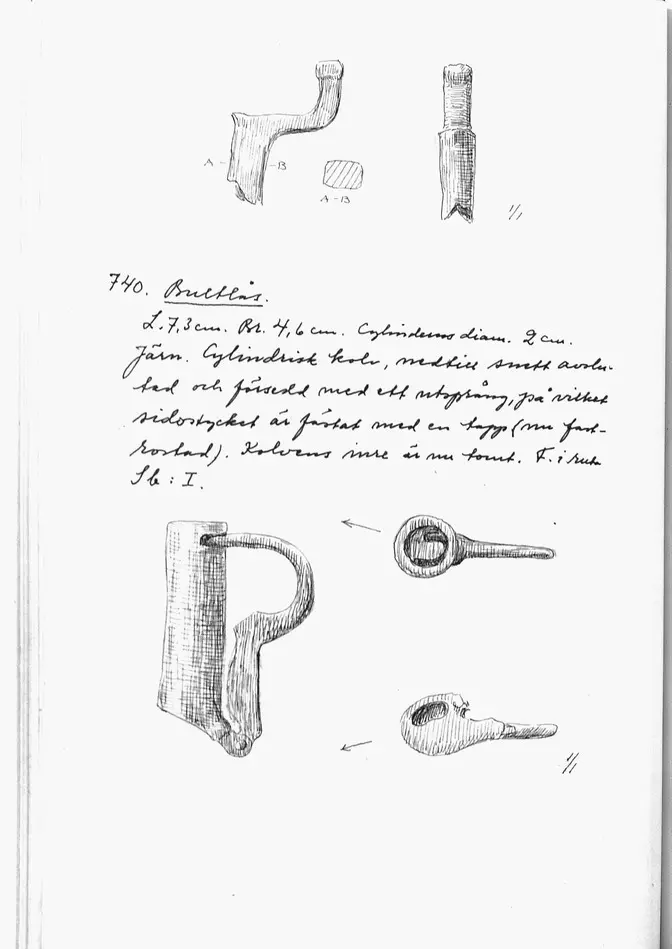 A - - B
A - B
1/1
740. Bultlås.
L. 7,3 cm. Br. 4,6 cm. Cylinderns diam. 2 cm.
Järn. Cylindrisk kolv, nedtill snett avslu-
tad och försedd med ett utsprång, på vilket
sidostycket är fästat med en tapp (nu fast-
rostad). Kolvens inre är nu tomt. F. i ruta
S b : I.
1/1